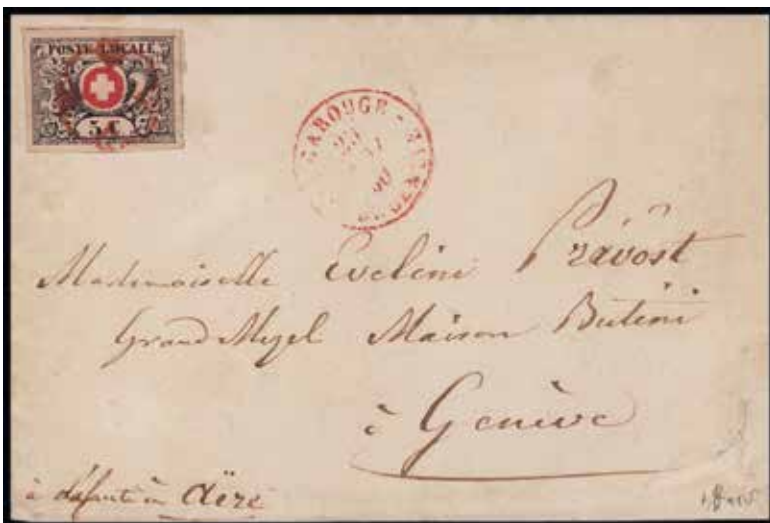 POSTE LOCALE
5 C
CAROUGE
Mademoiselle Eveline Prévost
Grand Mezel Maison Butini
à Genève
à défaut à